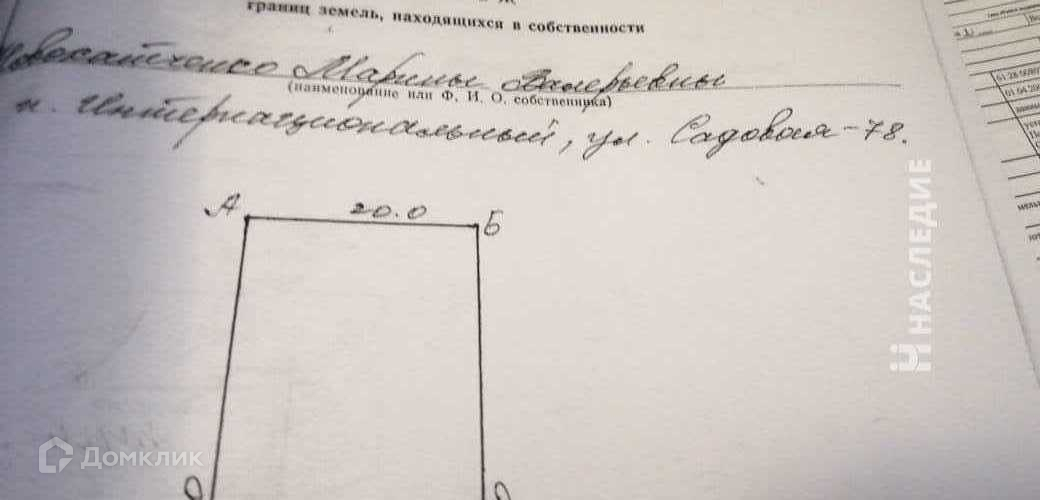 границ земель, находящихся в собственности
Марины Валерьевны
(наименование или Ф. И. О. собственника)
п. Интернациональный, ул. Садовая-78.
А 20.0 Б
НАСЛЕДИЕ
Домклик